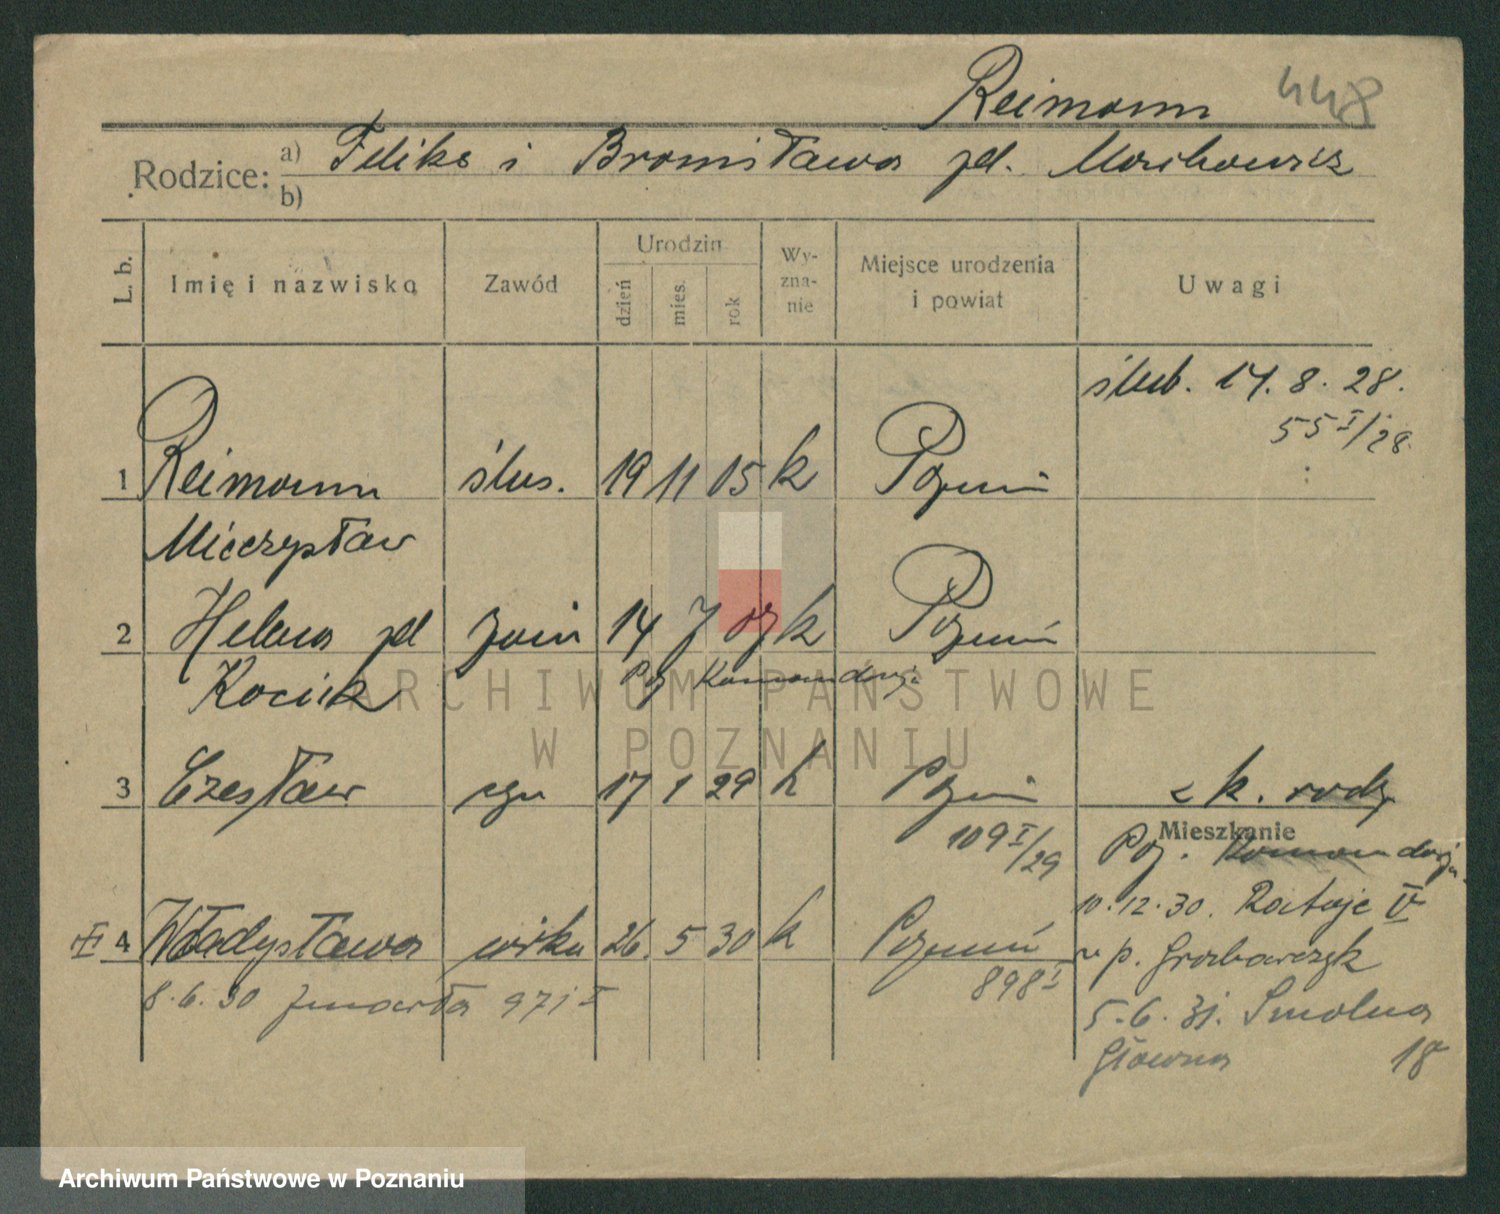 Reimann 448
Rodzice: a) Feliks i Bronisława zd. Marchowicz
b)
L. b. Imię i nazwisko Zawód Urodzin dzień mies. rok Wy-zna-nie Miejsce urodzenia i powiat Uwagi
ślub. 14. 8. 28.
55 I/28
1 Reimann ślus. 19 11 05 k Poznań
Mieczysław
2 Helena zd 14 7 07 k Poznań
Kocik Poz Komandorja
3 Czesław syn 17 1 29 k Poznań z k. rodz
109 I/29
Mieszkanie
Poz. Komandorja
10. 12. 30. Rataje IV
4 Władysława córka 26. 5 30 k Poznań
u p. Grobarczyk
8. 6. 30 zmarła 971 I
898 I
5. 6. 31. Smolna
Główna 18
ARCHIWUM PAŃSTWOWE
W POZNANIU
Archiwum Państwowe w Poznaniu